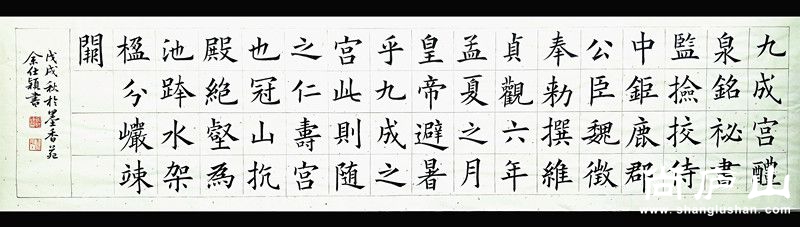 九成宮醴
泉銘祕書
監撿挍侍
中鉅鹿郡
公臣魏徵
奉勅撰維
貞觀六年
孟夏之月
皇帝避暑
乎九成之
宮此則随
之仁壽宮
也冠山抗
殿絕壑為
池跨水架
楹分巖竦
闕
戊戌秋於墨香苑
余仕穎書
尚庐山
www.shanglushan.com